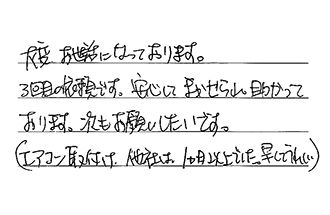 大変お世話になっております。
3回目の依頼です。安心してまかせられ助かって
おります。次もお願いしたいです。
(エアコン取付け、他社は1ヶ月以上でした。早くてうれしい)